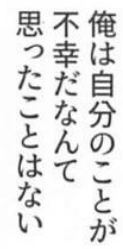 俺は自分のことが
不幸だなんて
思ったことはない